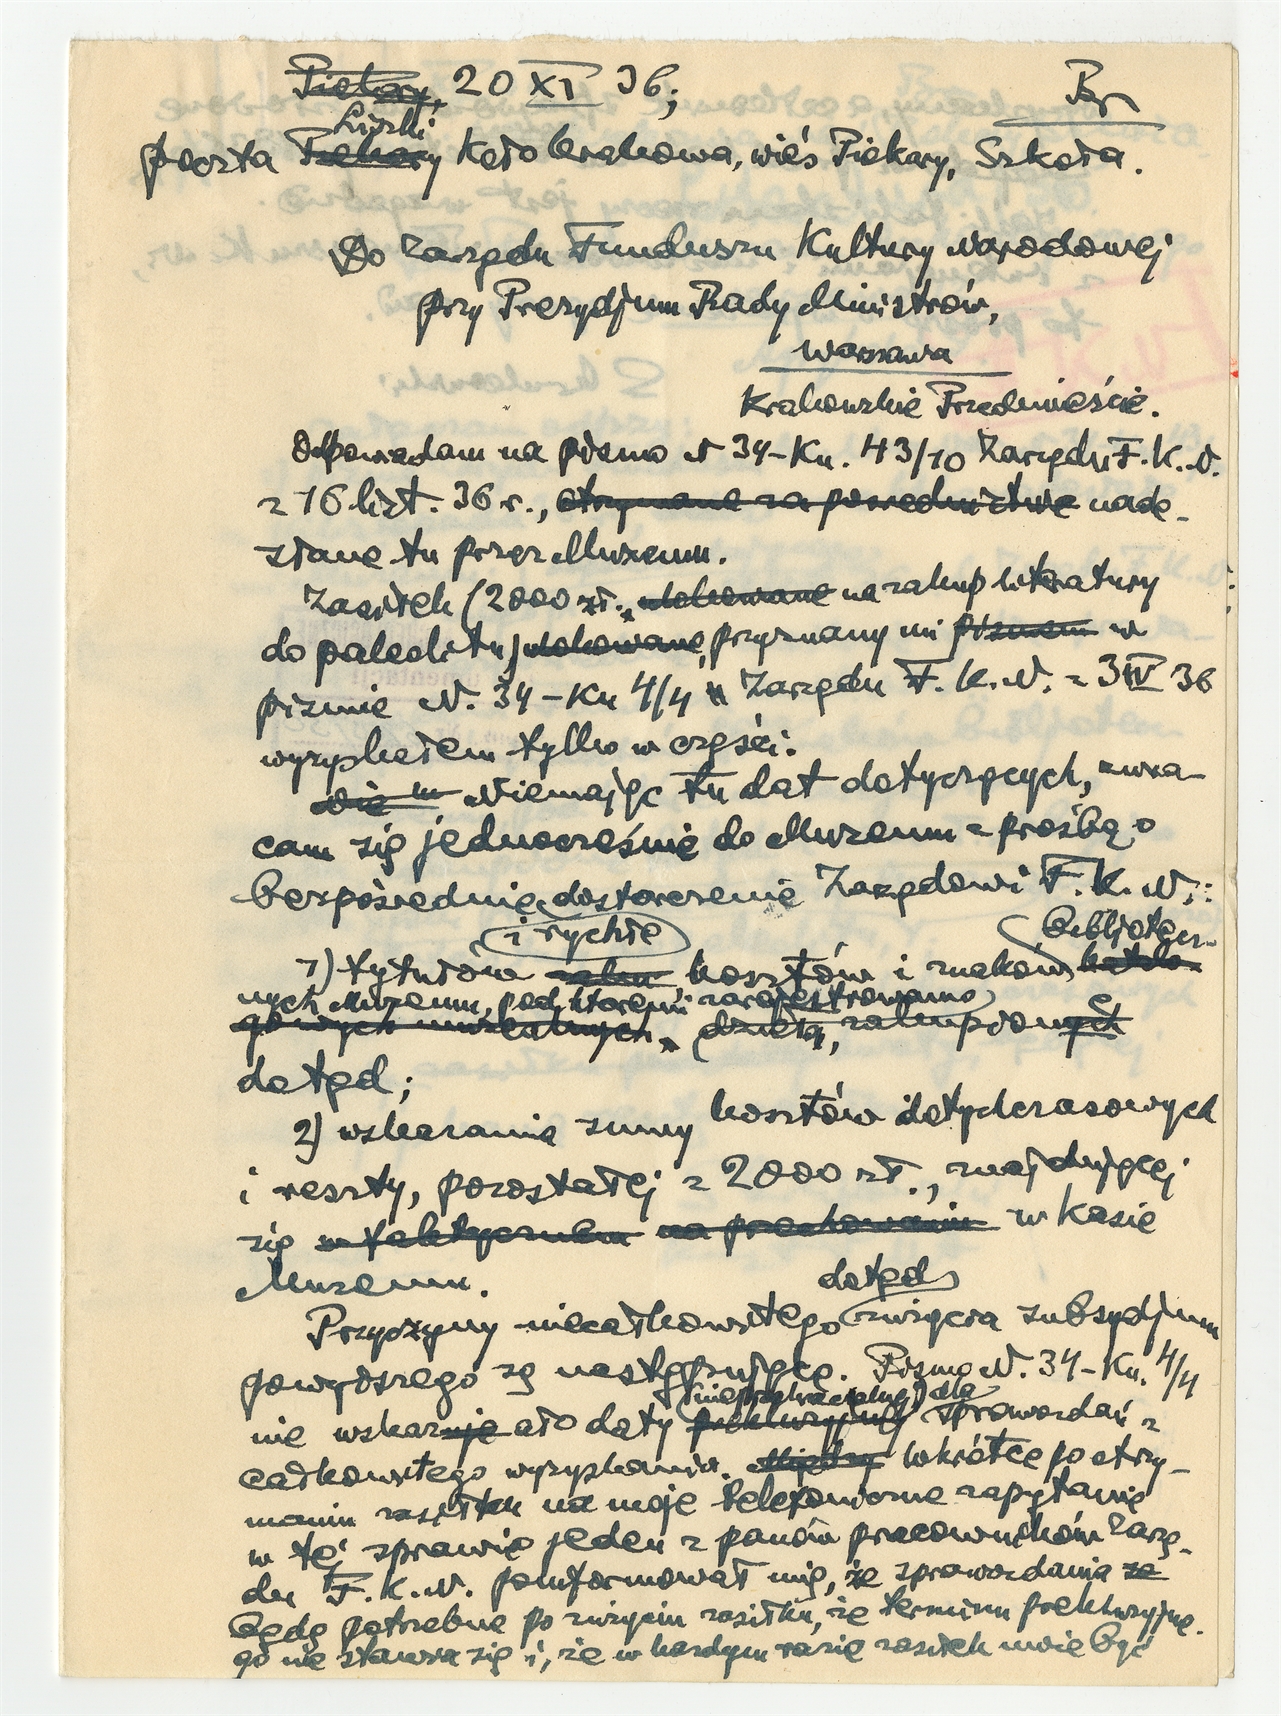 Piekary, 20 XI 36;
Br
Liszki
poczta Piekary koło Krakowa, wieś Piekary, Szkoła.
Do Zarządu Funduszu Kultury Narodowej
przy Prezydjum Rady Ministrów,
Warszawa
Krakowskie Przedmieście.
Odpowiadam na pismo N 34-Ku. 43/10 Zarządu F. K. N.
z 16 list. 36 r., otrzymane za pośrednictwe nade-
słane tu przez Muzeum.
Zasiłek (2000 zł., ulokowane na zakup literatury
do paleolitu) ulokowane, przyznany mi pismem w
piśmie N. 34-Ku 4/4 Zarządu F. K. N. z 3 IV 36
wyzyskałem tylko w części.
Nie mając tu dat dotyczących, zwra-
cam się jednocześnie do Muzeum z prośbą o
bezpośrednie dostarczenie Zarządowi F. K. N.:
i rychłe
bibljotecz-
1) tytułów kosztów i znaków katalo-
nych Muzeum, pod któremi zarejestrowano
gowych muzealnych, dzieła, zakupione
dotąd;
2) wskazania sumy kosztów dotychczasowych
i reszty, pozostałej z 2000 zł., znajdującej
się w faktycznem na przechowaniu w kasie
Muzeum.
dotąd
Przyczyny niecałkowitego zużycia subsydjum
powyższego są następujące. Pismo N. 34-Ku. 4/4
(nieprzekraczalnej) dla
nie wskazuje ało daty prekluzyjnej sprawozdań z
całkowitego wyzyskania. Między Wkrótce po otrzy-
maniu zasiłku na moje telefoniczne zapytanie
w tej sprawie jeden z panów pracowników Zarzą-
du F. K. N. poinformował mię, że sprawozdania za
będą potrzebne po zużyciu zasiłku, że terminu prekluzyjne-
go nie stawia się i, że w każdym razie zasiłek może być